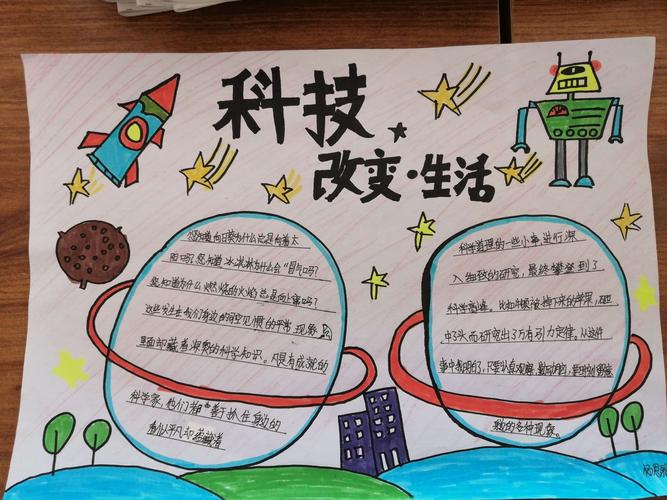 科技
改变·生活
您知道向日葵为什么总是向着太
阳吗？您知道冰淇淋为什么会“冒气吗？
您知道为什么燃烧的火焰总是向上窜吗？
这些发生在我们身边的司空见惯的平常现象
里面却藏着深奥的科学知识。凡是有成就的
科学家，他们都善于抓住身边的
看似平凡却蕴藏着
科学道理的一些小事进行深
入细致的研究，最终攀登到了
科学高峰。比如牛顿被掉下来的苹果，砸
中了头而研究出了万有引力定律。从这件
事中表明白了，只要认真观察，勤动脑筋，
身边的各种现象。